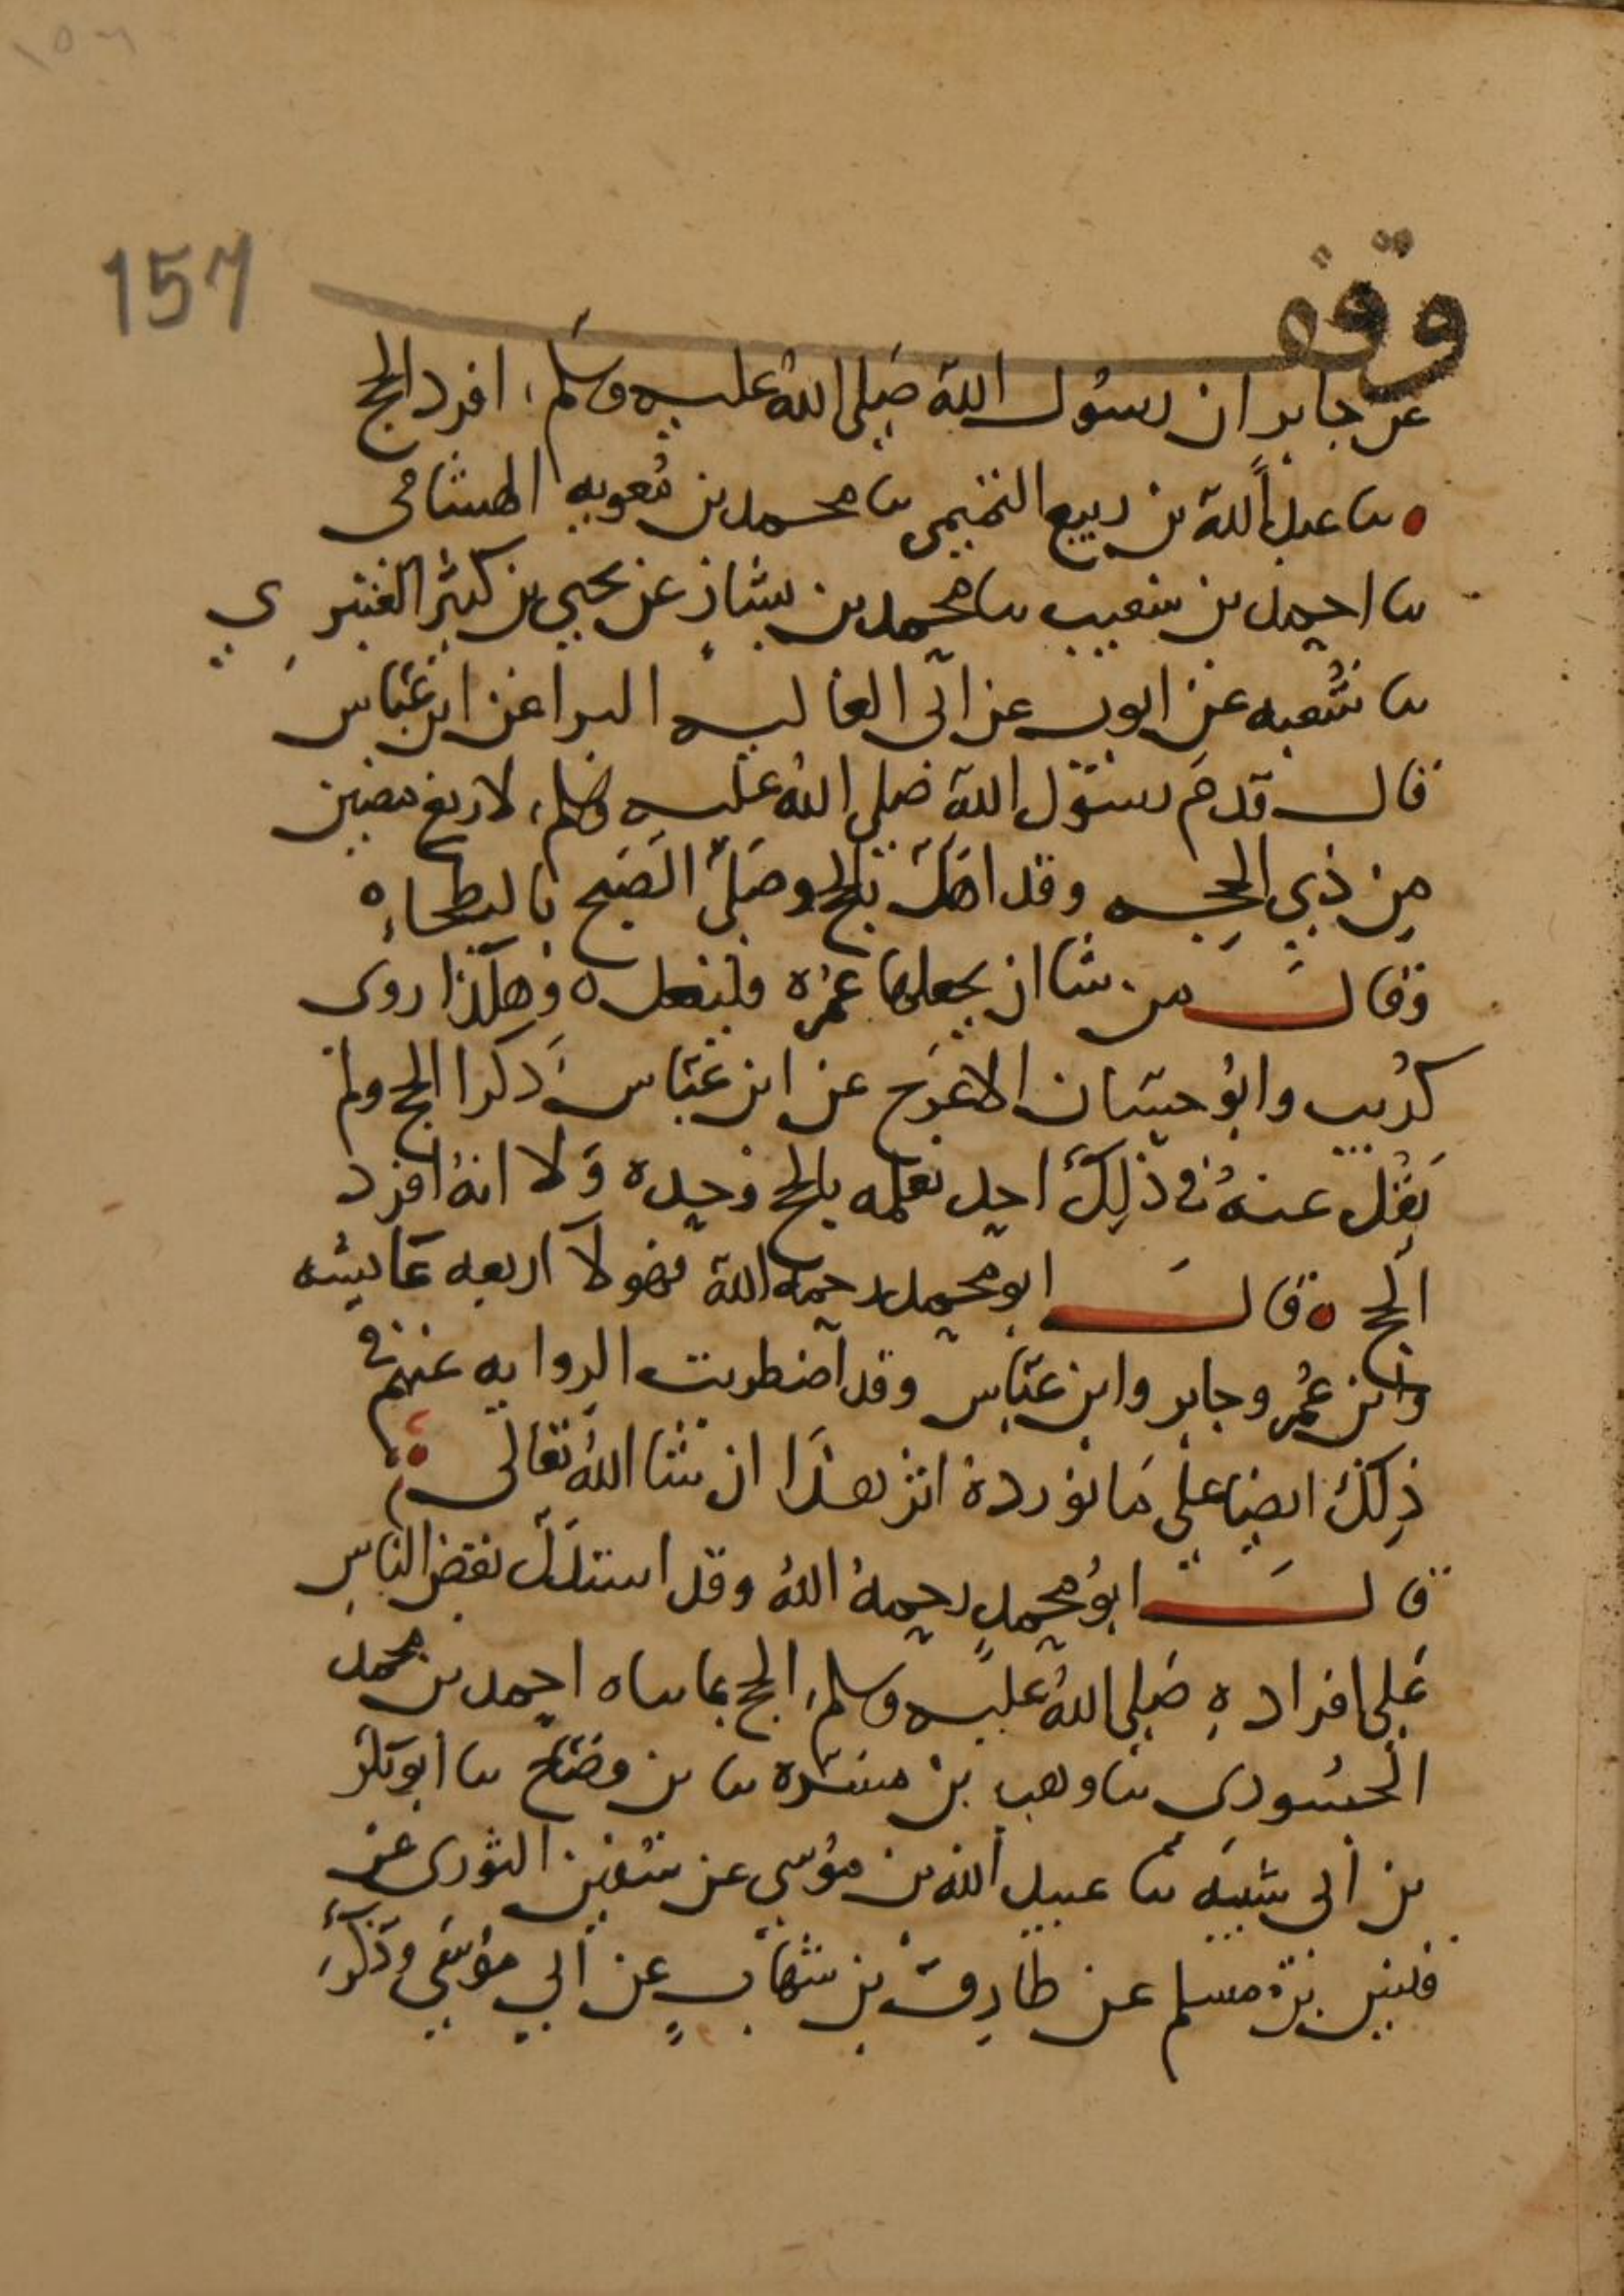 157
وقف
عن جابر ان رسول الله صلى الله عليه وسلم افرد الحج
سا عبد الله بن ربيع التميمي سا محمد بن معويه الهشامى
سا احمد بن شعيب سا محمد بن بشار عن يحيى بن كثير العنبري
سا شعبه عن ايوب عن ابى العاليه البرا عن ابن عباس
قال قدم رسول الله صلى الله عليه وسلم لاربع مضين
من ذي الحجه وقد اهل بالحج وصلى الصبح بالبطحاء
وقال من شا ان يجعلها عمره فليفعل وهكذا روى
كريب وابو حسان الاعرج عن ابن عباس ذكرا الحج ولم
يقل عنه في ذلك احد نعلمه بالحج وحده ولا انه افرد
الحج قال ابو محمد رحمه الله فهولا اربعه عايشه
وابن عمر وجابر وابن عباس وقد اضطربت الروايه عنهم في
ذلك ايضا على ما نورده اثر هذا ان شا الله تعالى
قال ابو محمد رحمه الله وقد استدل بعض الناس
على افراده صلى الله عليه وسلم الحج بما ساه احمد بن محمد
الجسورى سا وهب بن مسره سا بن وضاح سا ابو بكر
بن أبى شيبه سا عبيد الله بن موسى عن سفين الثورى عن
قيس بن مسلم عن طارق بن شهاب عن أبي موسى وذكر